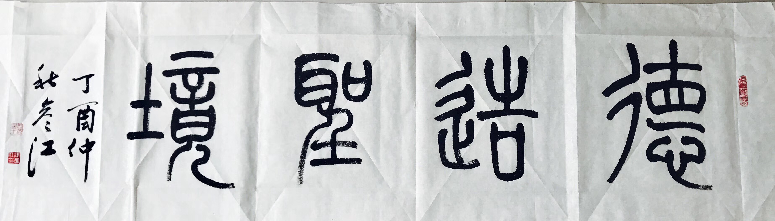 德造聖境
丁酉仲
秋
江